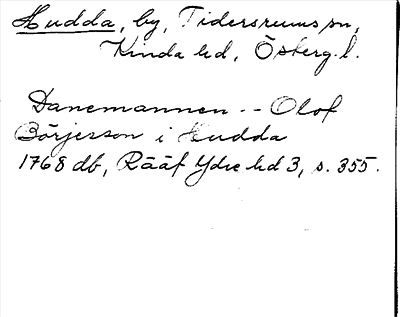 Hudda, by, Tidersrums sn,
Kinda hd, Österg. l.
Danemannen -- Olof
Börjesson i Hudda
1768 db, Rääf Ydre hd 3, s. 355.